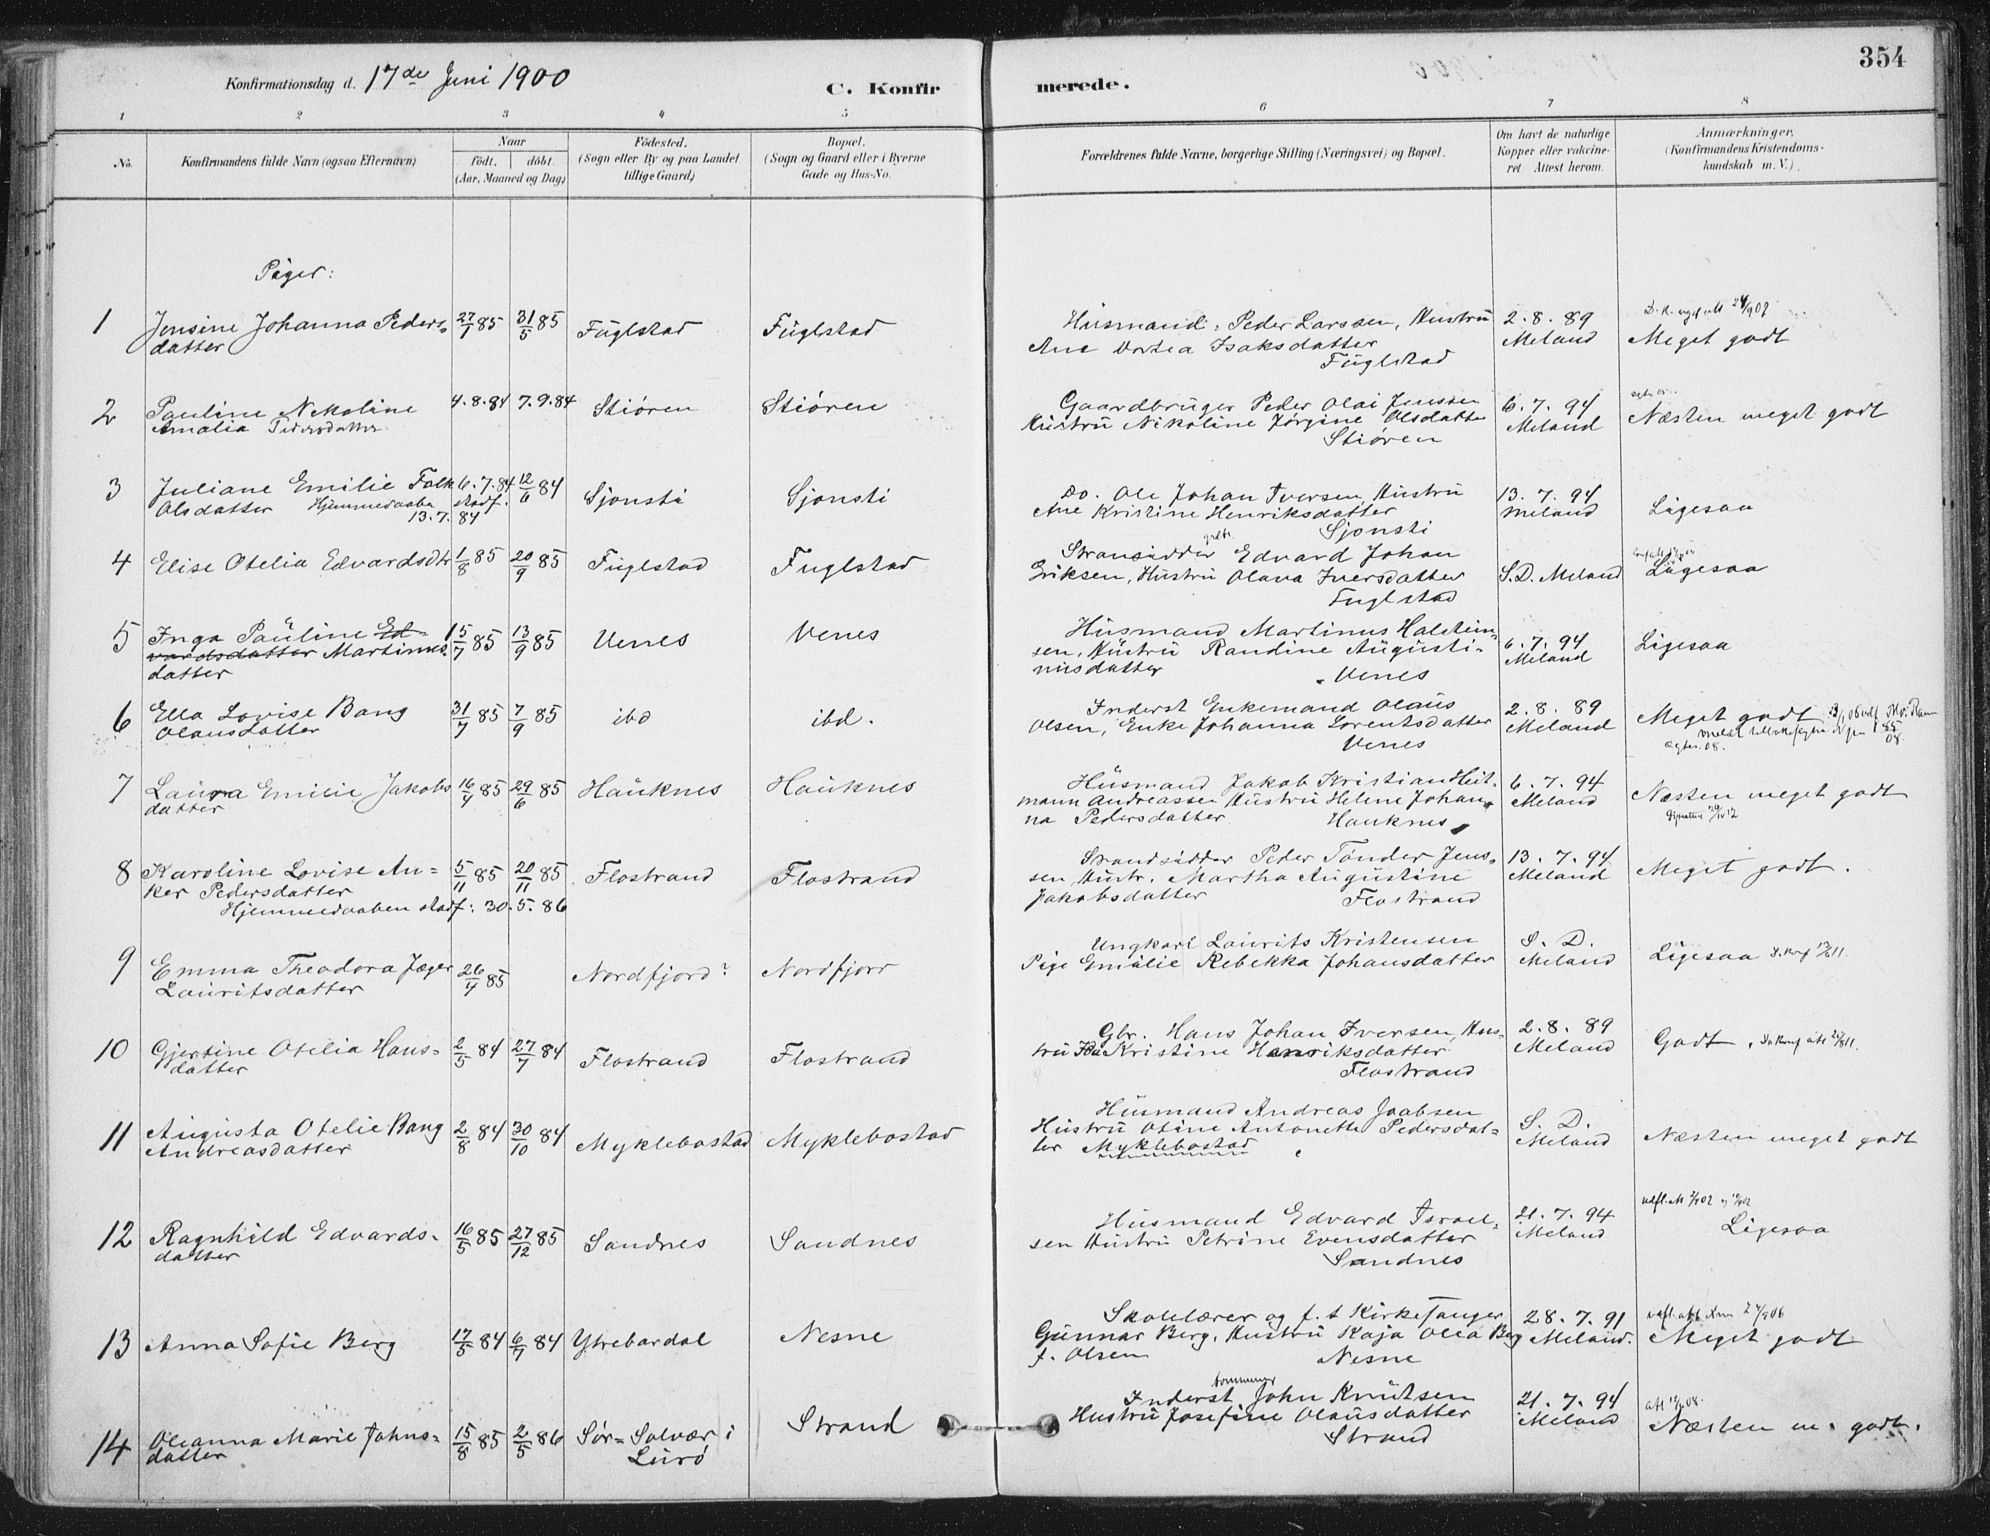 354
Konfirmationsdag d. 17de Juni 1900
C. Konfirmerede.
1 2 3 4 5 6 7 8
No. Konfirmandens fulde Navn (ogsaa Efternavn) Naar födt. döbt. (Aar, Maaned og Dag) Födested. (Sogn eller By og paa Landet tillige Gaard) Bopæl. (Sogn og Gaard eller i Byerne Gade og Hus-No.
Forældrenes fulde Navne, borgerlige Stilling (Næringsvei) og Bopæl. Om havt de naturlige Kopper eller vakcineret. Attest herom. Anmærkninger. (Konfirmandens Kristendomskundskab m. V.)
Piger:
1 Jensine Johanna Peders- 27/1 85 31/5 85 Fuglstad Fuglstad Husmand Peder Larssen, Hustru 2.8.89
datter Ane Dortea Isaksdatter Meland Meget godt
Fuglstad
2 Pauline Nekoline 4.8.84 7.9.84 Stiøren Stiøren Gaardbruger Peder Olai Jenssen 6.7.94
Amalia Pedersdatter Hustru Nikoline Jørgine Olsdatter Meland Næsten meget godt
Stiøren
3 Juliane Emilie Falk 6.7.84 12/6 84 Sjonsti Sjonsti Do. Ole Johan Iversen, Hustru 13.7.94
Olsdatter Hjemmedaaben stadf. Ane Kristine Henriksdatter Meland Ligesaa
13.7.84 Sjonsti
4 Elise Otelia Edvardsdtr 1/8 85 20/9 85 Fuglstad Fuglstad Strandsidder Edvard Johan
Eriksen, Hustru Olava Iversdatter S.D. Meland Ligesaa
Fuglstad
5 Inga Pauline Ed- 15/7 85 13/9 85 Venes Venes Husmand Martinus Halstein-
vardsdatter Martinus- sen, Hustru Randine Augusti- 6.7.94 Ligesaa
datter nusdatter Venes Meland
6 Ella Lovise Bang 31/7 85 7/9 85 ibd ibd. Inderst Enkemand Olaus 2.8.89
Olausdatter Olsen, Enke Johanna Lorentsdatter Meland Meget godt
Venes
7 Laura Emilie Jakobs 16/4 85 29/6 85 Hauknes Hauknes Husmand Jakob Kristian Heit- 6.7.94
datter mann Andreassen Hustru Helene Johan- Meland Næsten meget godt
na Pedersdatter Hauknes
8 Karoline Lovise An- 5/11 85 20/11 85 Flostrand Flostrand Strandsidder Peder Tønder Jens- 13.7.94
ker Pedersdatter sen, Hustr. Martha Augustine Meland Meget godt.
Hjemmedaaben stadf: 30.5.86 Jakobsdatter Flostrand
9 Emma Theodora Jæger 26/4 85 Nordfjord? Nordfjord Ungkarl Laurits Kristensen S.D.
Lauritsdatter Pige Emalie Rebekka Johansdatter Meland Ligesaa
10 Gjertine Otelia Hans- 2/5 84 27/7 84 Flostrand Flostrand Gbr. Hans Johan Iversen, Hus- 2.8.89
datter tru Kristine Henriksdatter Meland Godt
Flostrand
11 Augusta Otelie Bang 2/8 84 30/10 84 Myklebostad Myklebostad Husmand Andreas Joabsen S.D.
Andreasdatter Hustru Otine Antonette Pedersdat- Meland Næsten meget godt
ter Myklebostad
12 Ragnhild Edvards- 16/5 85 27/12 85 Sandnes Sandnes Husmand Edvard Israel- 21.7.94
datter sen Hustru Petrine Evensdatter Meland Ligesaa
Sandnes
13 Anna Sofie Berg 17/5 84 6/7 84 Ytrebardal Nesne Skolelærer og f.t Kirkesanger 28.7.91
Gunnar Berg, Hustru Kaja Olea Berg Meland. Meget godt
f. Olsen Nesne
14 Oleanna Marie Johns- 15/8 85 2/5 86 Sør-Solvær i Strand Inderst John Knutsen 21.7.94
datter Lurø Hustru Josefine Olausdatter Meland Næsten m. godt.
Strand